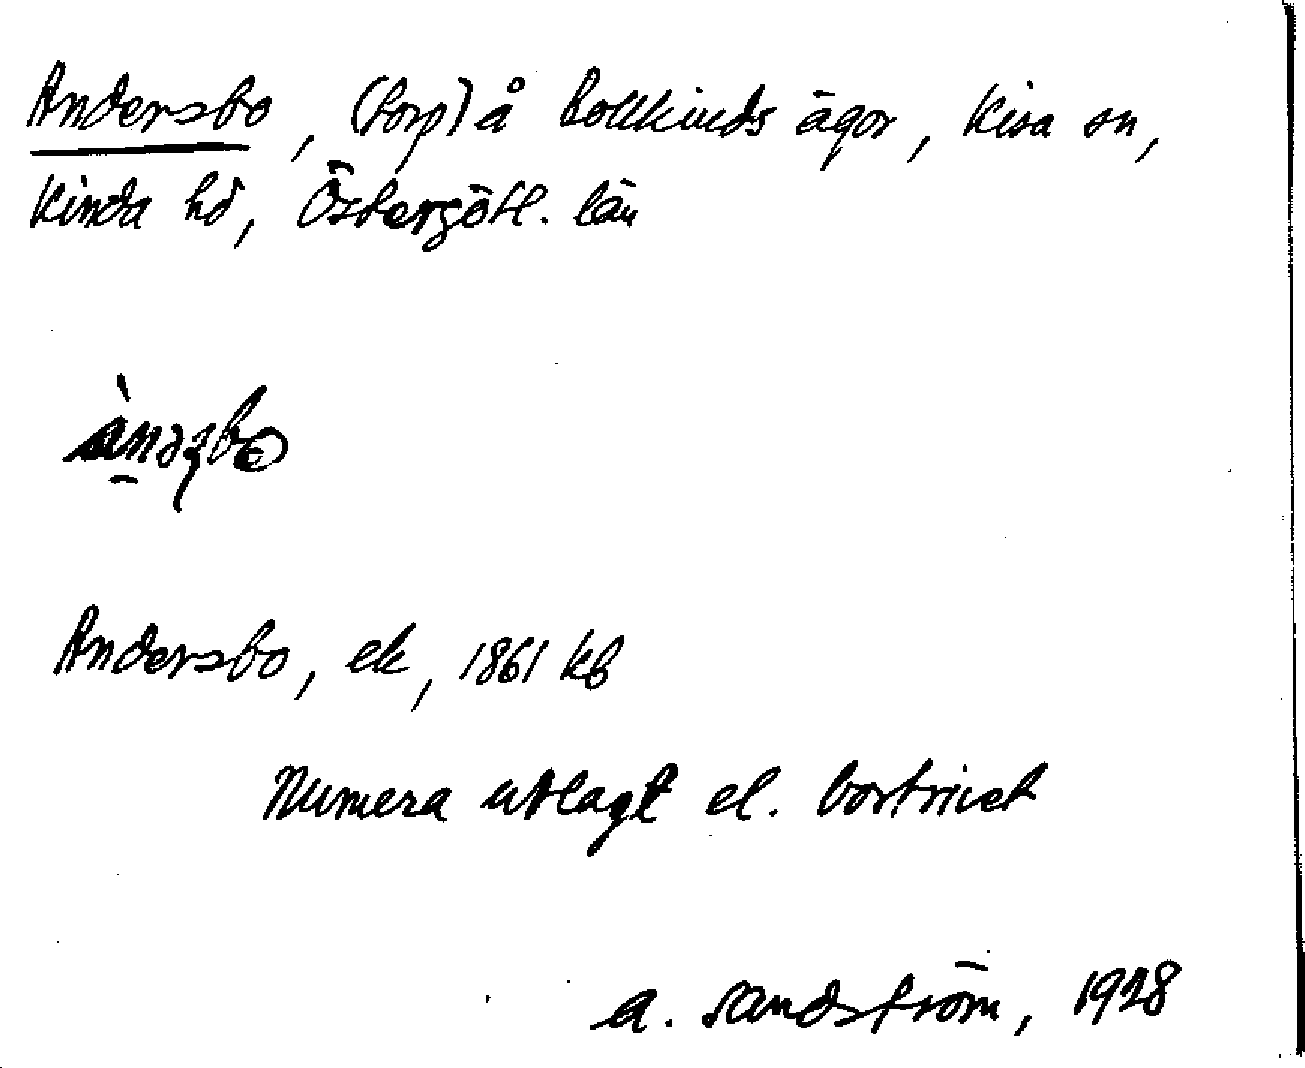 Andersbo, (torp) å Bollkinds ägor, Kisa sn,
Kinda hd, Östergötl. län
Andersbo, ek, 1861 kb
Numera utlagt el. bortrivet
A. Sandström, 1928